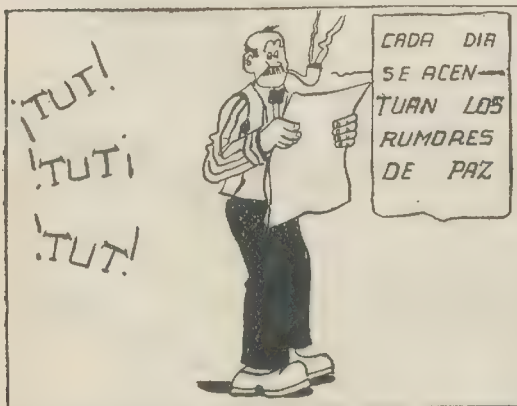 ¡TUT!
¡TUT¡
¡TUT!
CADA DIA
SE ACEN—
TUAN LOS
RUMORES
DE PAZ